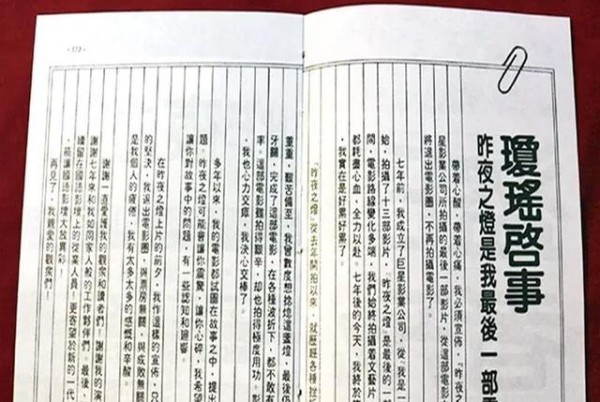 瓊瑤啓事
昨夜之燈是我最後一部
帶着心酸，帶着心痛，我必須宣佈，「昨夜之
星影業公司所拍攝的最後一部影片，從這部電影
將退出電影圈，不再拍攝電影了。
七年前，我成立了巨星影業公司，從「我是一
始，拍攝了十三部影片，「昨夜之燈」是最後的一部
間，電影路線變化多端，我們始終拍攝着文藝片
都耗盡心血，全力以赴。七年後的今天，我終於
，我實在是好累好累了。
「昨夜之燈」從去年開拍以來，就歷經各種挫
重重，艱苦備至，我曾數度想捻熄這盞燈，最後仍
牙關，完成了這部電影，在各種波折下，都不敢有
率。這部電影雖拍得艱辛，却也拍得極度用功。影
，我也心力交瘁，我決心交棒了。
多年以來，我的電影都試圖在故事之中，提出
題。昨夜之燈可能會讓你震驚，讓你心碎，我希望
讓你對故事中的問題，有一些認知和迴響。
在昨夜之燈上片的前夕，我作這樣的宣佈，只
的堅決，我退出電影圈，與票房無關，與成敗無
是我個人的疲倦，我有太多太多的感慨和辛酸。
謝謝一直愛護我的觀衆和讀者們！謝謝我的演
謝七年來和我如同家人般的工作夥伴們。最後，
續留在國語影壇上的從業人員！更寄望於新的一代
，能讓國語影壇大放異彩！
再見了，我親愛的觀衆們！
·173·